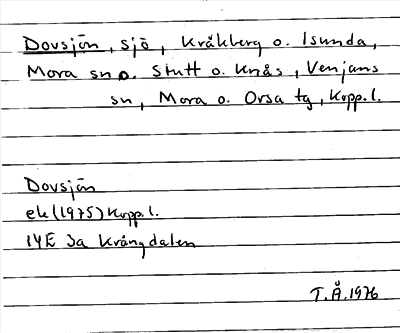 Dovsjön, sjö, Kråkberg o. Isunda,
Mora sn o. Stutt o. Knås, Venjans
sn, Mora o. Orsa tg, Kopp.l.
Dovsjön
ek (1975) Kopp.l.
14E 3a Krångdalen
T.Å. 1976